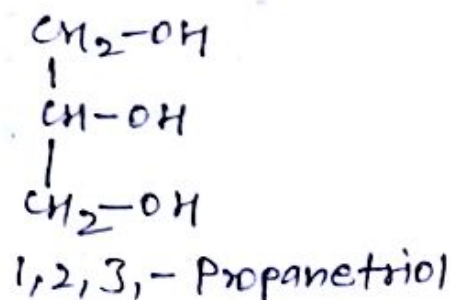 CH2-OH
CH-OH
CH2-OH
1,2,3,- Propanetriol